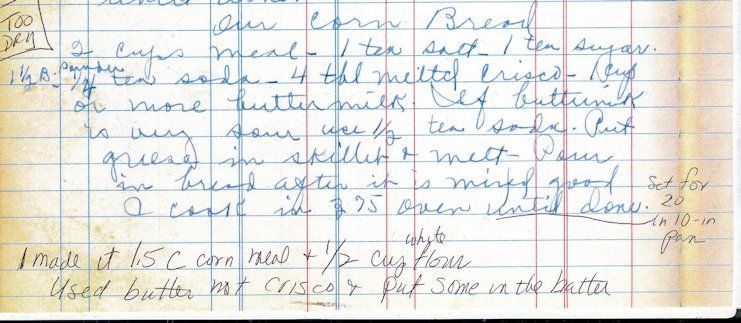 TOO
DRY
Our Corn Bread
2 Cups meal - 1 tea salt - 1 tea sugar.
1½ B. Powder ¼ tea soda - 4 tbl melted Crisco - 1 cup
or more butter milk. If
is very sour use ½ tea soda. Put
grease in skillet & melt - Pour
in bread after it is mixed good
cook in 375 oven until done.
Set for
20
in 10-in
pan
I made it 1.5 C corn meal + ½ cup white flour
Used butter not Crisco & put some in the batter